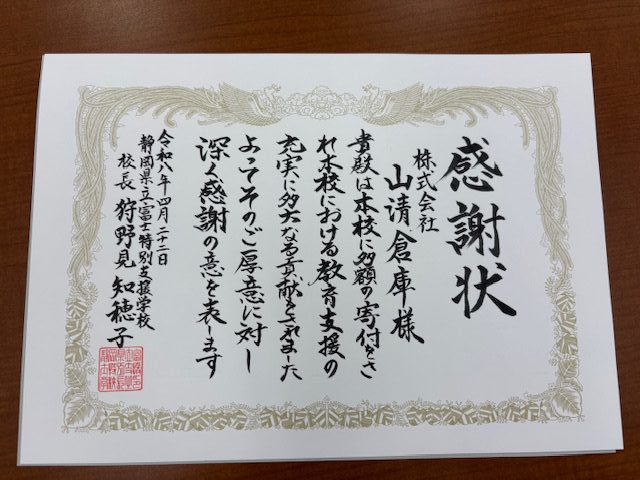 感謝状
株式会社
山清倉庫様
貴殿は本校に多額の寄付をさ
れ本校における教育支援の
充実に多大なる貢献をされました
よってそのご厚意に対し
深く感謝の意を表します
令和八年四月二十二日
静岡県立富士特別支援学校
校長 狩野見知穂子